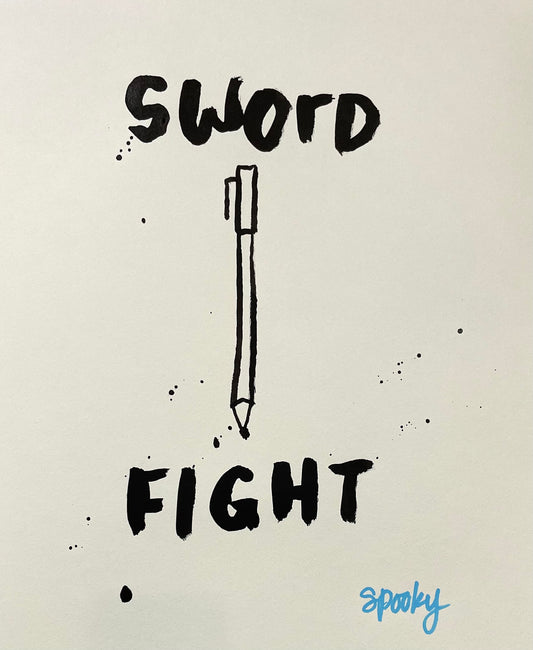 SWOrD
FIGHT
spooky